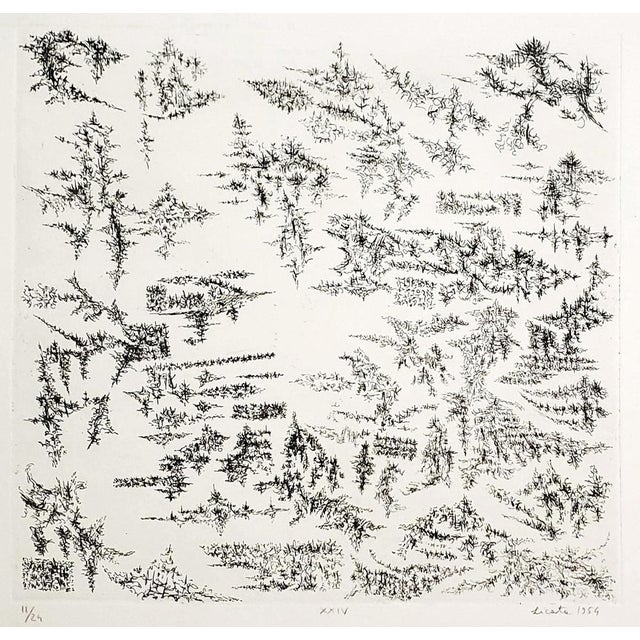 11/24 XXIV Licata 1954